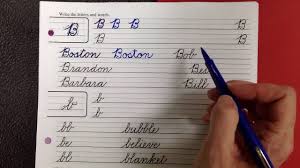 Write the letters and words.
B B B B B
B B
Boston Boston Bob
Brandon
Barbara Bill
b b
bb bubble
be believe
bl blanket